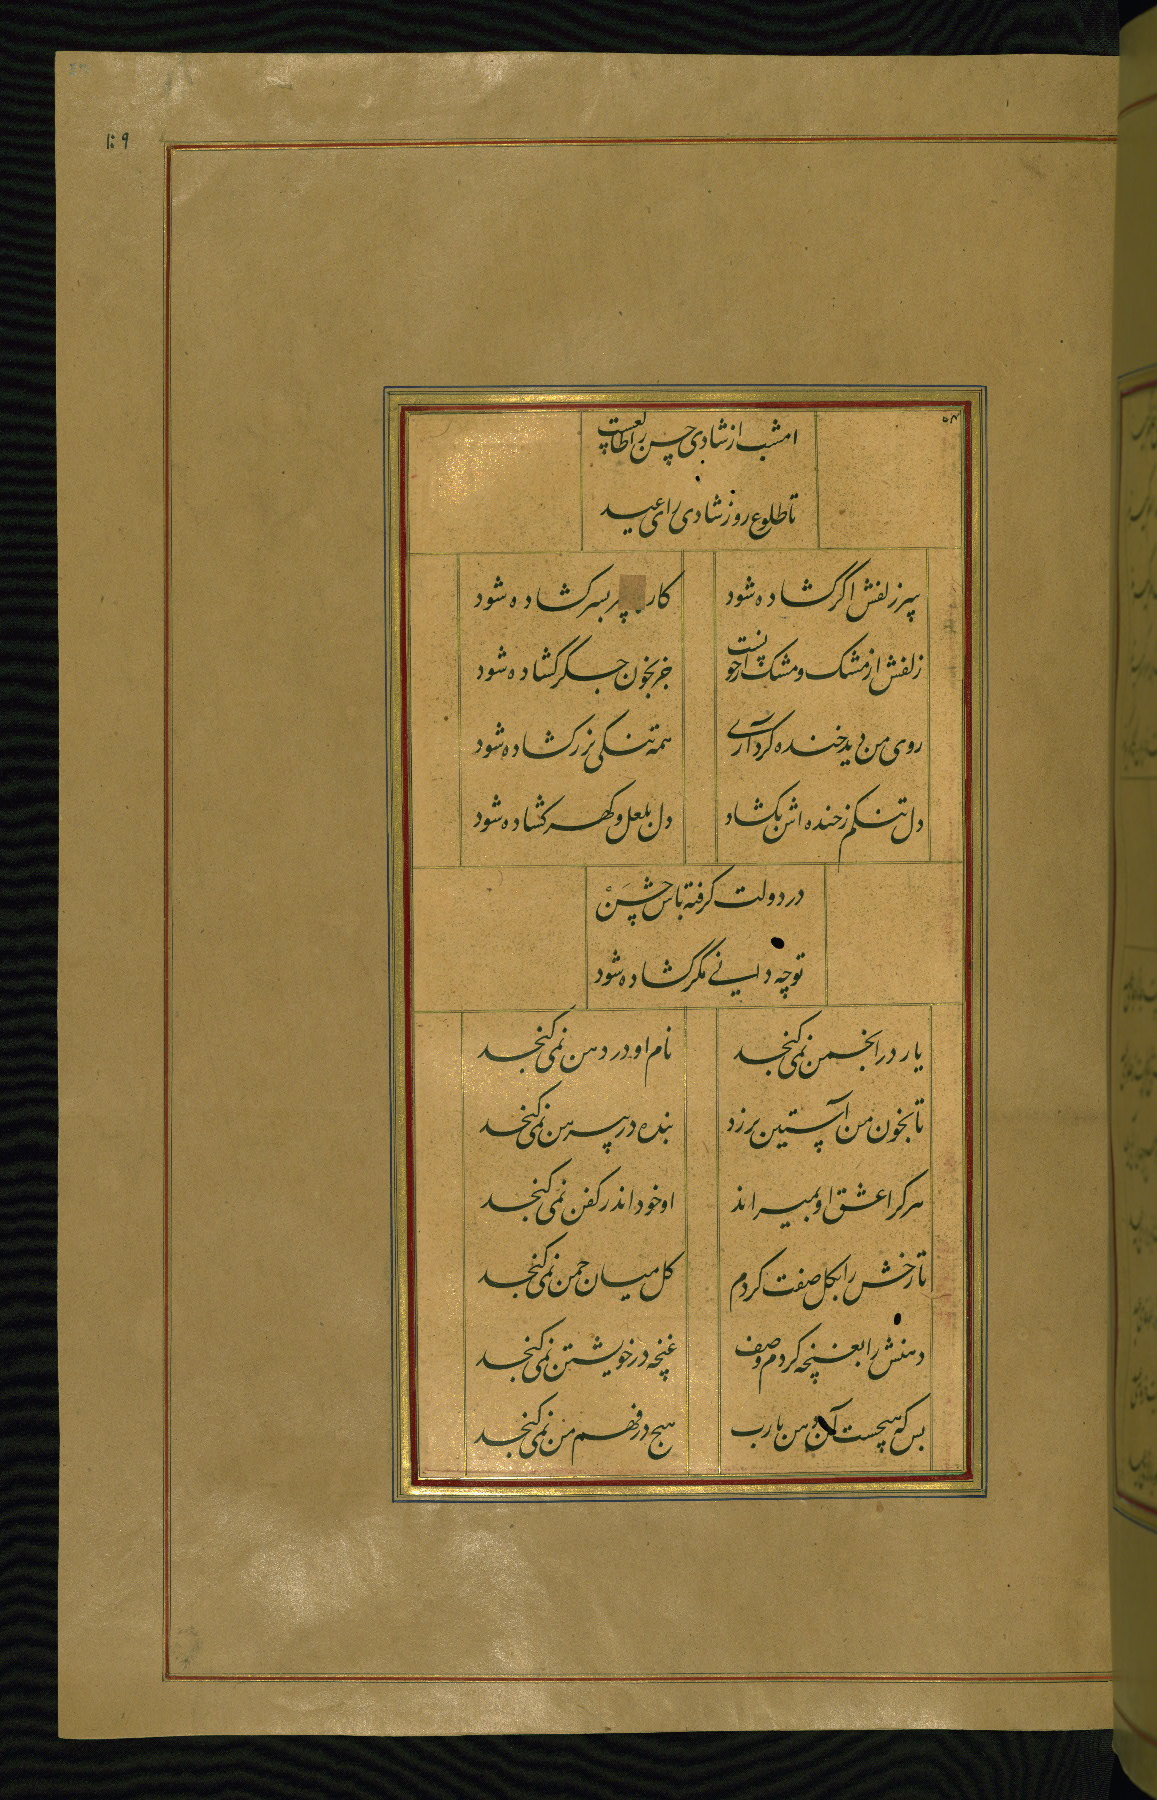 امشب از شادی حسن را طالعست
تا طلوع روز شادی رای عید
سر زلفش اگر گشاده شود
کار بسر گشاده شود
زلفش از مشک و مشک از خونست
جز بخون جگر گشاده شود
روی من دید خنده کرد آری
همه تنگی بزر گشاده شود
دل تنگم ز خنده اش بگشاد
دل بلعل و گهر گشاده شود
در دولت گرفته باش حسن
تو چه دانی مگر گشاده شود
یار در انجمن نمی گنجد
نام او در دهن نمی گنجد
تا بخون من آستین برزد
بنده در پیرهن نمی گنجد
هر کرا عشق او بمیراند
او خود اندر کفن نمی گنجد
تا رخش را بگل صفت کردم
گل میان چمن نمی گنجد
دهنش را بغنچه کردم وصف
غنچه در خویشتن نمی گنجد
بس که هیچست آن دهن یارب
هیچ در فهم من نمی گنجد